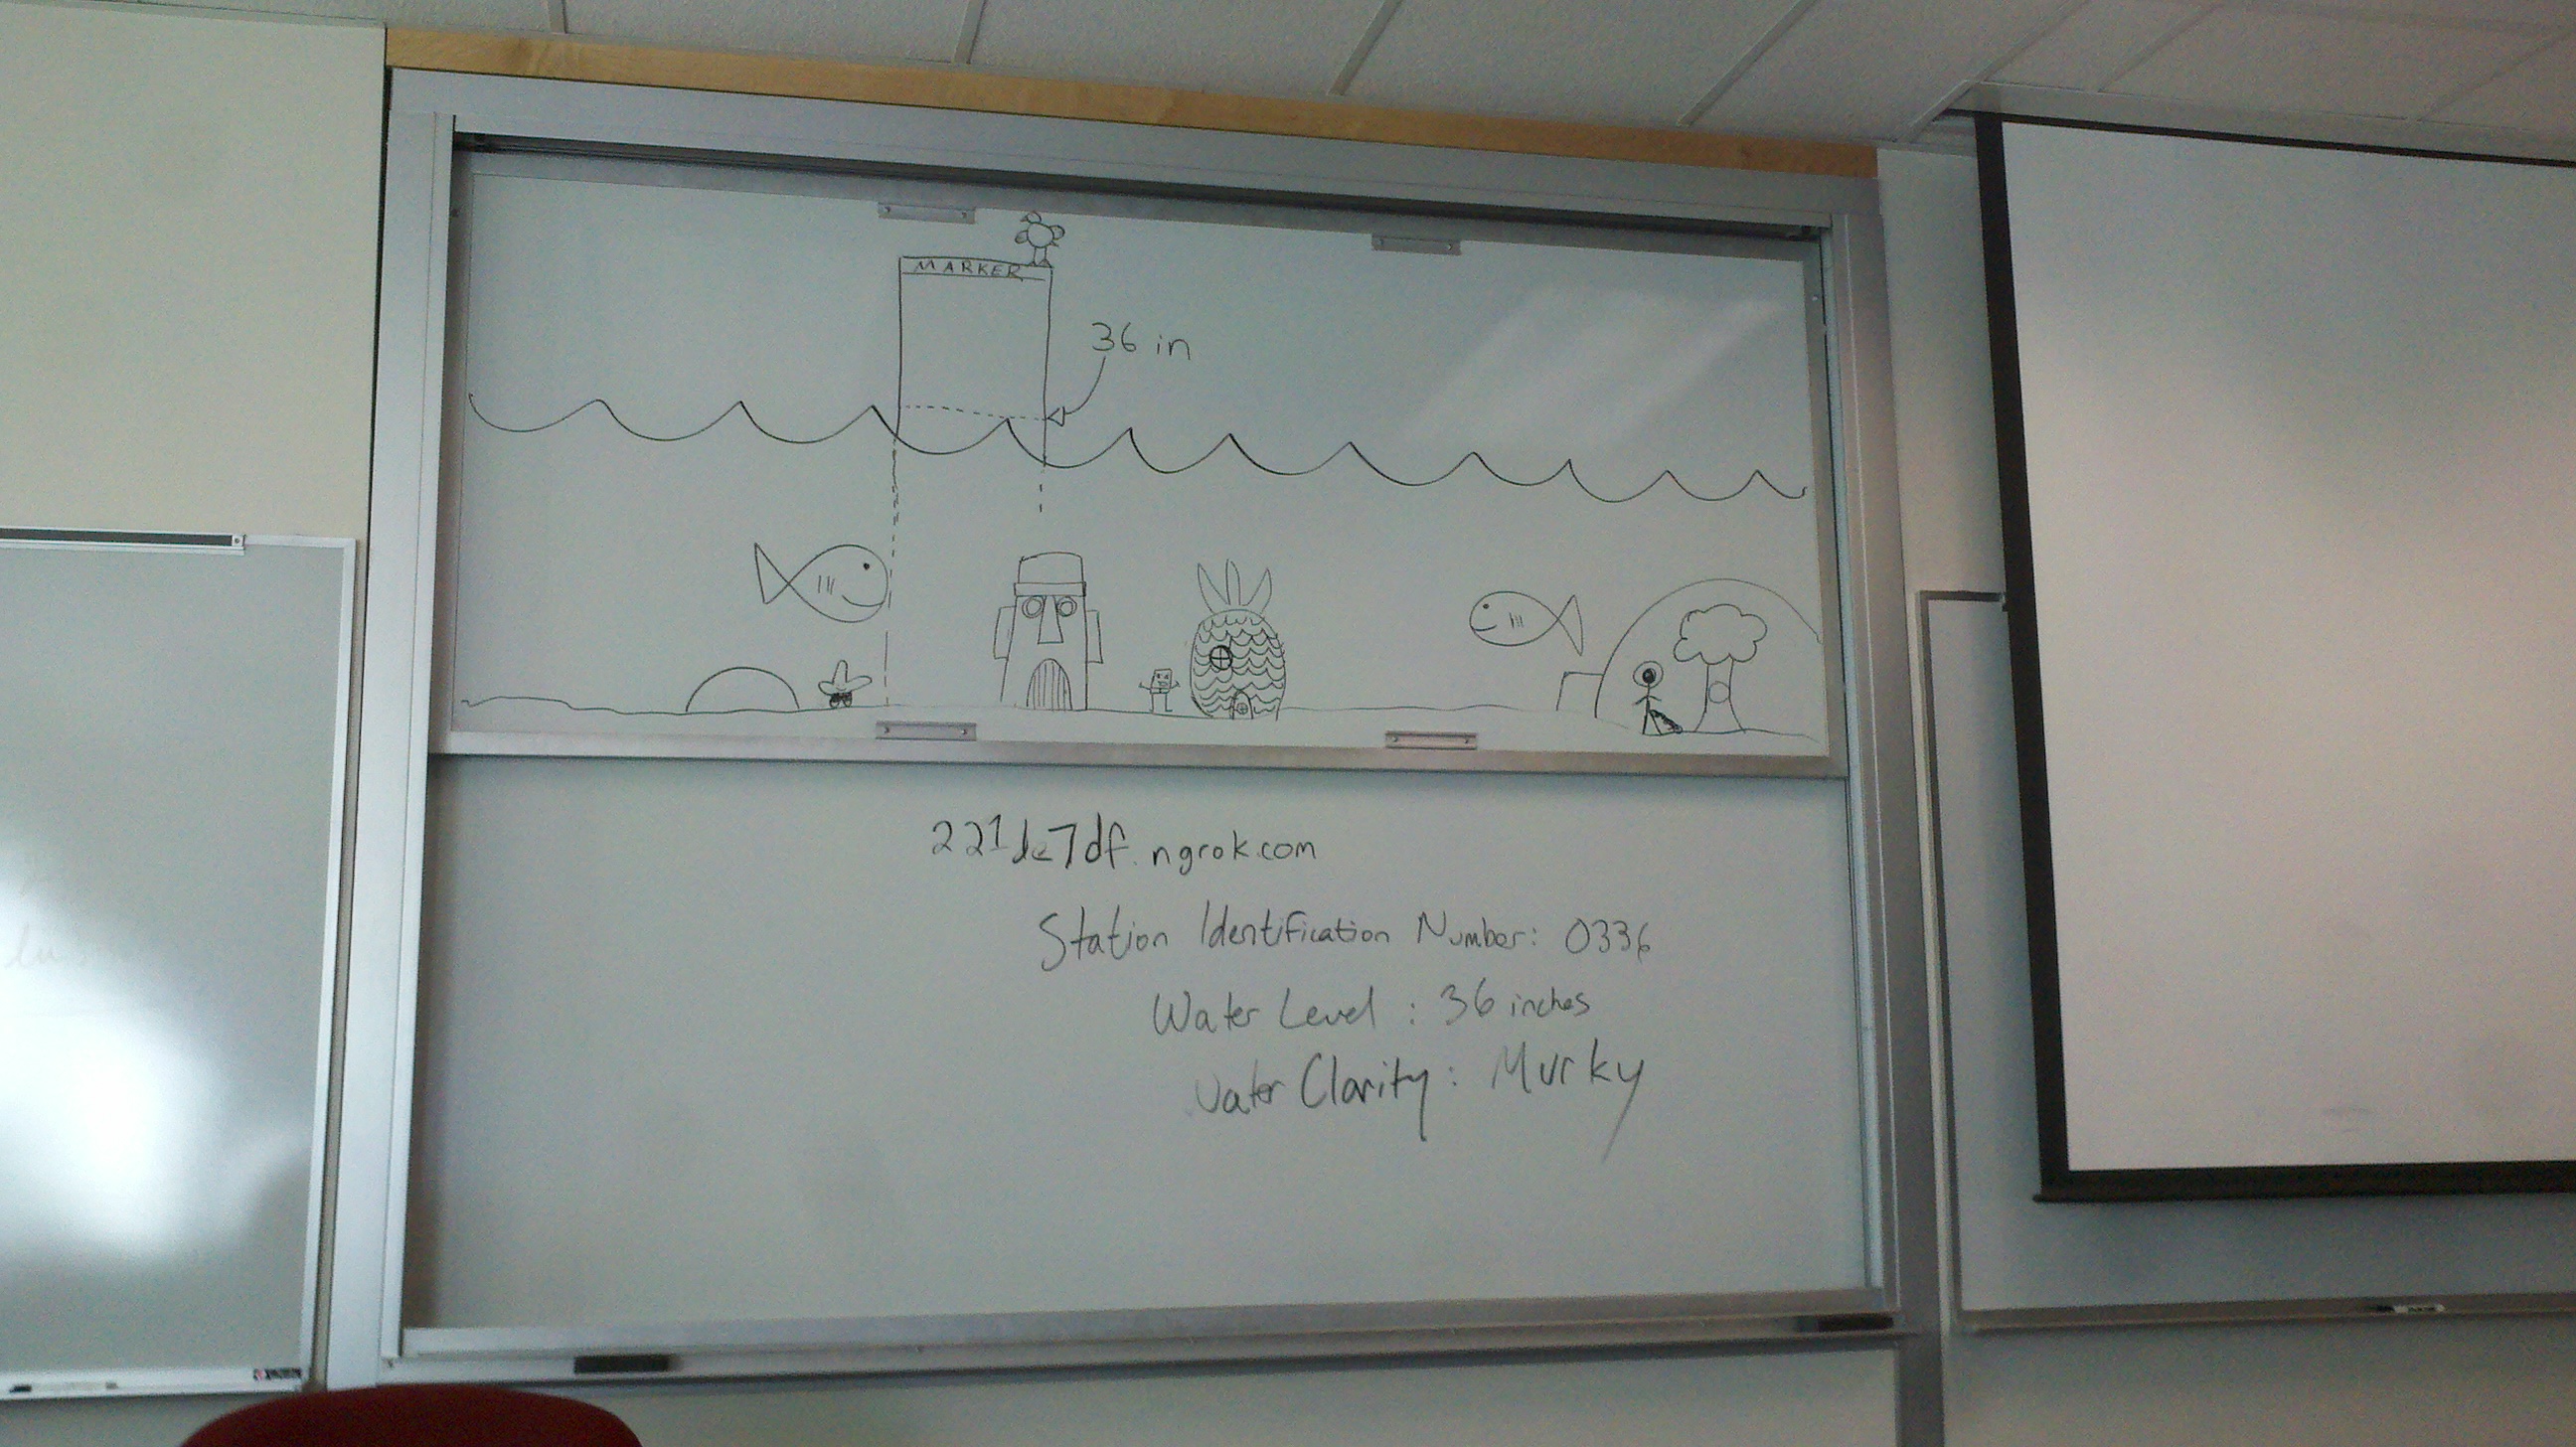 MARKER
36 in
221de7df.ngrok.com
Station Identification Number: 0336
Water Level : 36 inches
Water Clarity : Murky